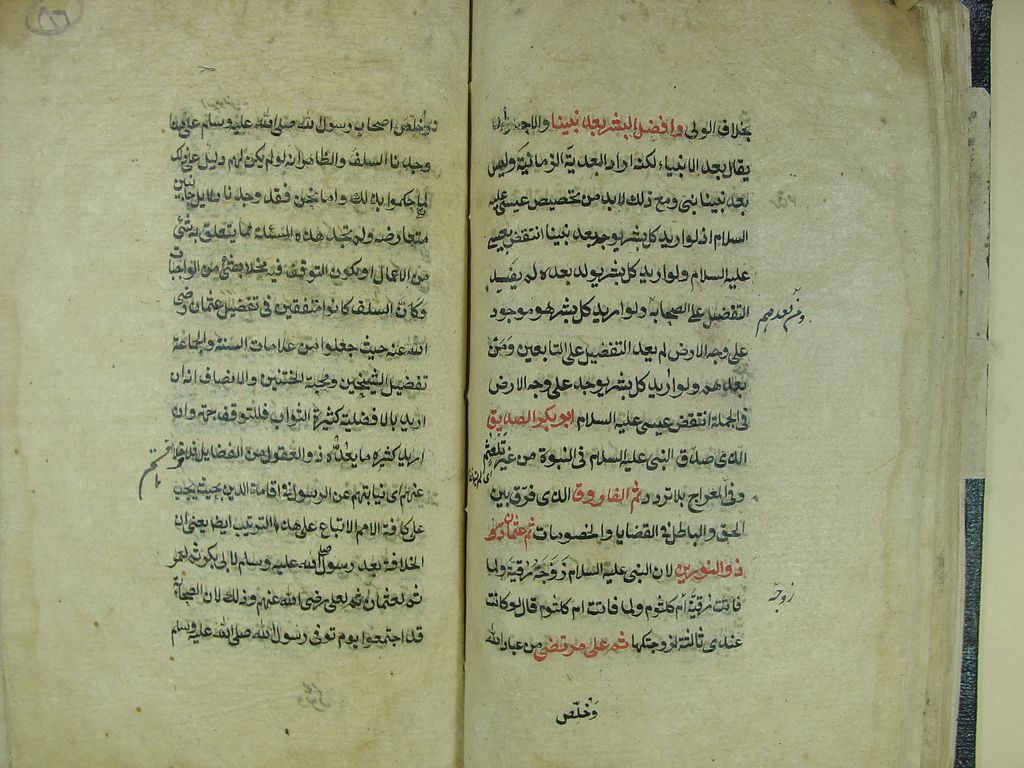 بخلاف الولي وافضل البشر بعد نبينا والاحسن ان
يقال بعد الانبياء لكنه اراد البعدية الزمانية وليس
بعد نبينا نبي ومع ذلك لابد من تخصيص عيسى عليه
السلام اذ لو اريد كل بشر يوجد بعد نبينا انتقض بعيسى
عليه السلام ولو اريد كل بشر يولد بعده لم يفسد
التفضيل على الصحابة ولو اريد كل بشر هو موجود
ومن بعدهم
على وجه الارض لم يعد التفضيل على التابعين ومن
بعدهم ولو اريد كل بشر يوجد على وجه الارض
في الجملة انتقض عيسى عليه السلام ابو بكر الصديق
الذي صدق النبي عليه السلام في النبوة من غير تلعثم
وفي المعراج بلا تردد ثم الفاروق الذي فرق بين
الحق والباطل في القضايا والخصومات ثم عثمان
ذو النورين لان النبي عليه السلام زوجه رقية ولما
زوجه
فاتت رقية ام كلثوم ولما فاتت ام كلثوم قال لو كانت
عندي ثالثة لزوجتكها ثم علي مرتضى من عباد الله
وخلص
وخلص اصحاب رسول الله صلى الله عليه وسلم على هذا
وجدنا السلف والظاهر انه لو لم يكن لهم دليل على ذلك
لما حكموا بذلك واما نحن فقد وجدنا دلايل جانبين
متعارضة ولم نجد هذه المسئلة مما يتعلق به شئ
من الاعمال او يكون التوقف فيه مخلا بشئ من الواجبات
وكان السلف كانوا متفقين في تفضيل عثمان رضي
الله عنه حيث جعلوا من علامات السنة والجماعة
تفضيل الشيخين ومحبة الختنين والانصاف انه ان
اريد بالافضلية كثرة الثواب فللتوقف جهة وان
اريد كثرة ما يعده ذو العقول من الفضايل فلا
اي نيابتهم عن الرسول في اقامة الدين بحيث يجب
على كافة الامم الاتباع على هذا الترتيب ايضا يعني ان
الخلافة بعد رسول الله عليه وسلم لابي بكر ثم لعمر
ثم لعثمان ثم لعلي رضي الله عنهم وذلك لان الصحابة
قد اجتمعوا يوم توفي رسول الله صلى الله عليه وسلم